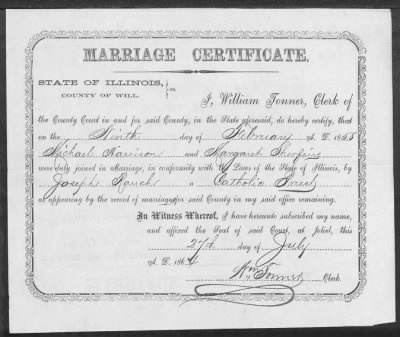 MARRIAGE CERTIFICATE.
STATE OF ILLINOIS, } ss.
COUNTY OF WILL.
I, William Tonner, Clerk of
the County Court in and for said County, in the State aforesaid, do hereby certify, that
on the Ninth day of February A. D. 1855
Michael Harrison and Margaret
were duly joined in Marriage, in conformity with the Laws of the State of Illinois, by
Joseph Rauch a Catholic Priest
as appearing by the record of marriages for said County in my said office remaining.
In Witness Whereof, I have hereunto subscribed my name,
and affixed the Seal of said Court, at Joliet, this
27th day of July
A. D. 1864
Wm Tonner Clerk.